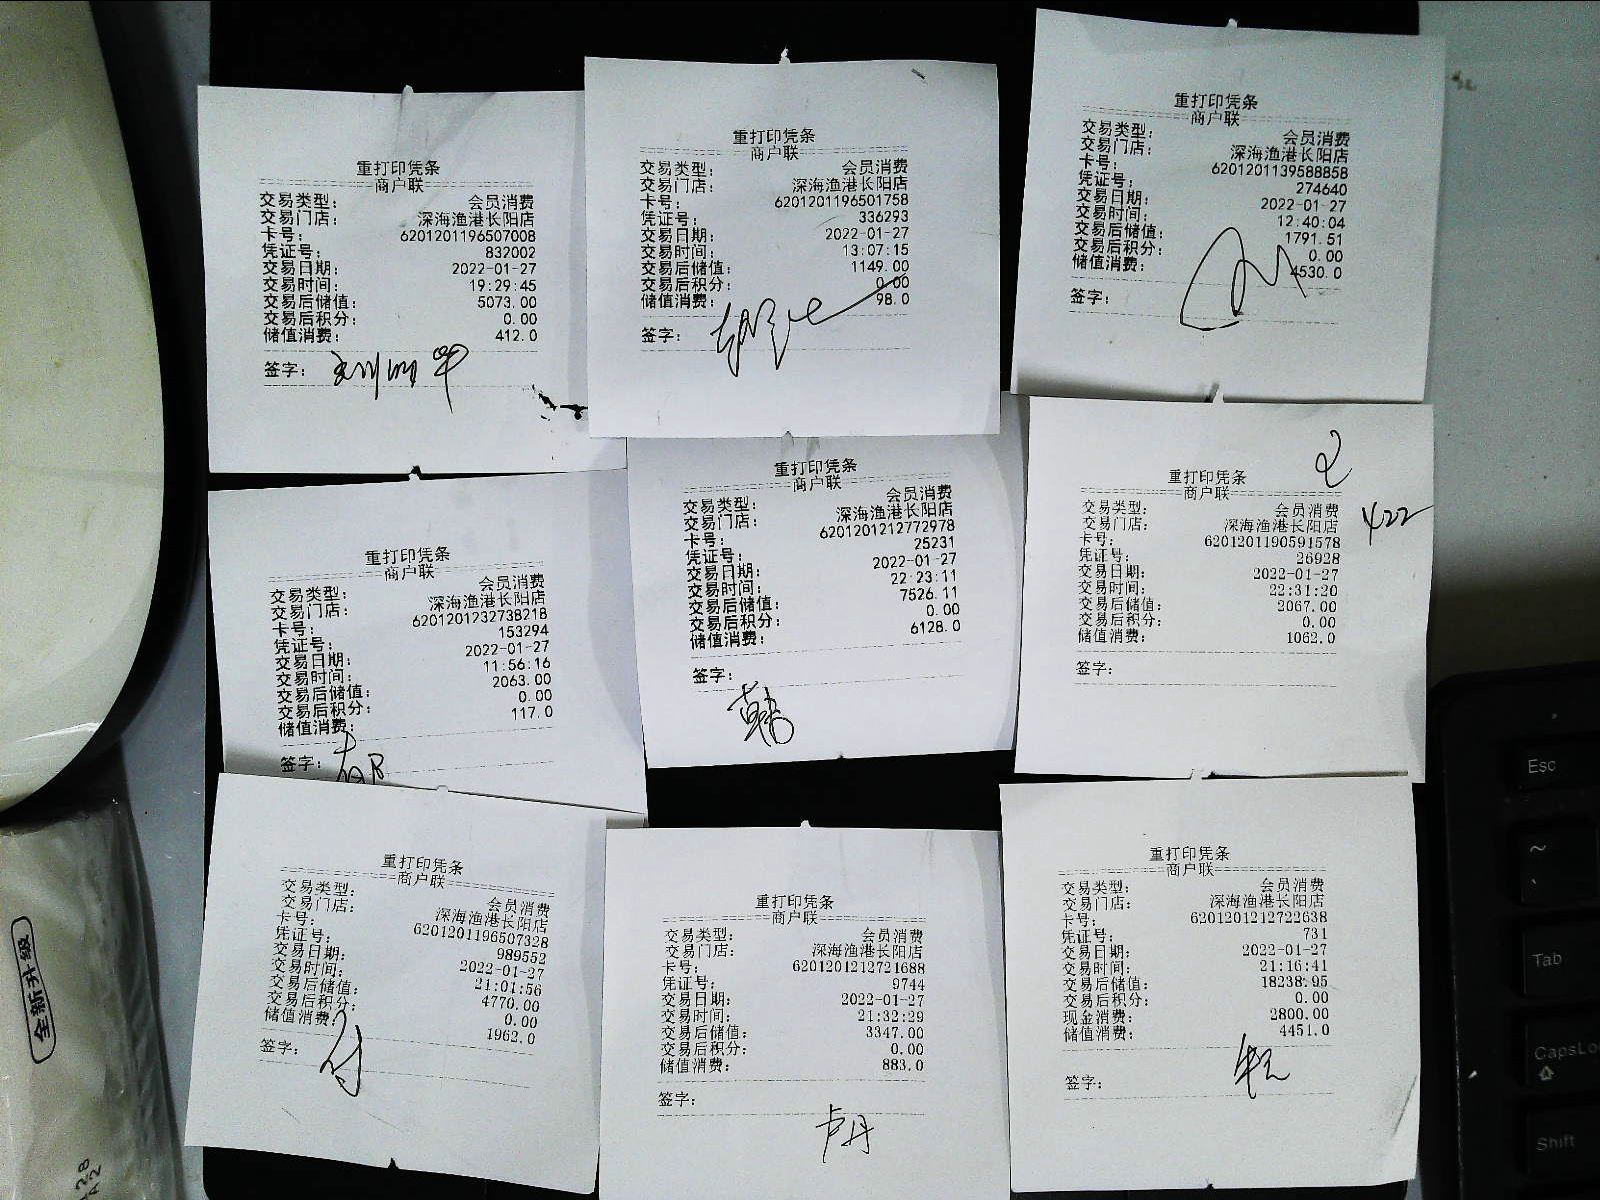 重打印凭条
商户联
交易类型： 会员消费
交易门店： 深海渔港长阳店
卡号： 6201201196507008
凭证号： 832002
交易日期： 2022-01-27
交易时间： 19:29:45
交易后储值： 5073.00
交易后积分： 0.00
储值消费： 412.0
签字：
重打印凭条
商户联
交易类型： 会员消费
交易门店： 深海渔港长阳店
卡号： 6201201196501758
凭证号： 336293
交易日期： 2022-01-27
交易时间： 13:07:15
交易后储值： 1149.00
交易后积分： 0.00
储值消费： 98.0
签字：
重打印凭条
商户联
交易类型： 会员消费
交易门店： 深海渔港长阳店
卡号： 6201201139588858
凭证号： 274640
交易日期： 2022-01-27
交易时间： 12:40:04
交易后储值： 1791.51
交易后积分： 0.00
储值消费： 4530.0
签字：
重打印凭条
商户联
交易类型： 会员消费
交易门店： 深海渔港长阳店
卡号： 6201201232738218
凭证号： 153294
交易日期： 2022-01-27
交易时间： 11:56:16
交易后储值： 2063.00
交易后积分： 0.00
储值消费： 117.0
签字：
重打印凭条
商户联
交易类型： 会员消费
交易门店： 深海渔港长阳店
卡号： 6201201212772978
凭证号： 25231
交易日期： 2022-01-27
交易时间： 22:23:11
交易后储值： 7526.11
交易后积分： 0.00
储值消费： 6128.0
签字： 韩
重打印凭条
商户联
交易类型： 会员消费
交易门店： 深海渔港长阳店
422
卡号： 6201201190591578
凭证号： 26928
交易日期： 2022-01-27
交易时间： 22:31:20
交易后储值： 2067.00
交易后积分： 0.00
储值消费： 1062.0
签字：
重打印凭条
商户联
交易类型： 会员消费
交易门店： 深海渔港长阳店
卡号： 6201201196507328
凭证号： 989552
交易日期： 2022-01-27
交易时间： 21:01:56
交易后储值： 4770.00
交易后积分： 0.00
储值消费： 1962.0
签字： 付
重打印凭条
商户联
交易类型： 会员消费
交易门店： 深海渔港长阳店
卡号： 6201201212721688
凭证号： 9744
交易日期： 2022-01-27
交易时间： 21:32:29
交易后储值： 3347.00
交易后积分： 0.00
储值消费： 883.0
签字：
卢丹
重打印凭条
商户联
交易类型： 会员消费
交易门店： 深海渔港长阳店
卡号： 6201201212722638
凭证号： 731
交易日期： 2022-01-27
交易时间： 21:16:41
交易后储值： 18238.95
交易后积分： 0.00
现金消费： 2800.00
储值消费： 4451.0
签字：
全新升级
Esc
~
Tab
CapsLo
Shift